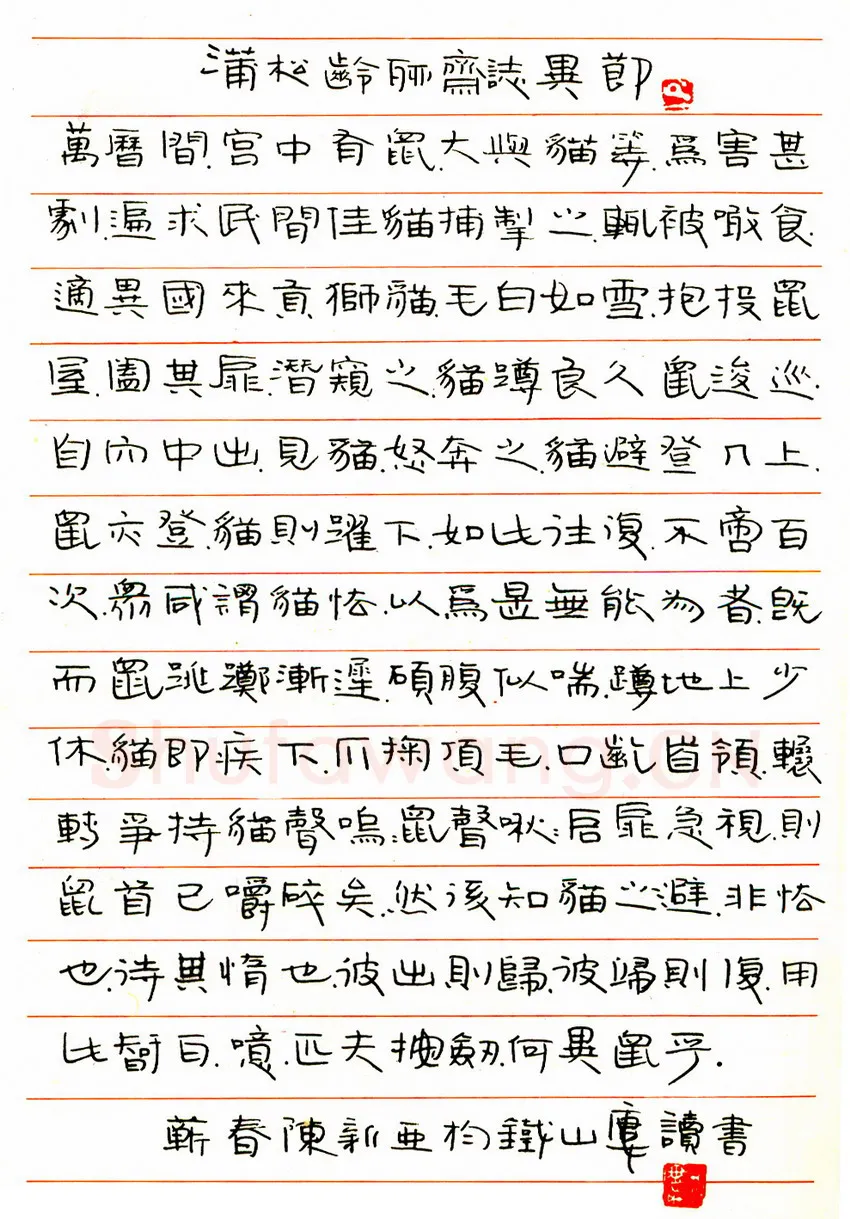 蒲松齡聊齋誌異節
萬曆間.宮中有鼠.大與貓等.爲害甚
劇.遍求民間佳貓捕掣之.輒被噉食.
適異國來貢獅貓.毛白如雪.抱投鼠
屋.闔其扉.潛窺之.貓蹲良久鼠逡巡.
自內中出.見貓.怒奔之.貓避登几上.
鼠亦登.貓則躍下.如此往復.不啻百
次.眾咸謂貓怯.以爲是無能為者.旣
而鼠跳擲漸遲.碩腹似喘.蹲地上少
休.貓即疾下.爪掬頂毛.口齕首領.輾
轉爭持貓聲嗚:鼠聲啾:启扉急視.則
鼠首已嚼碎矣.然後知貓之避.非怯
也.待其惰也.彼出則歸.彼歸則復.用
此智耳.噫.匹夫按劔.何異鼠乎.
蘄春陳新亞於鐵山廔讀書
Shufawang.CN